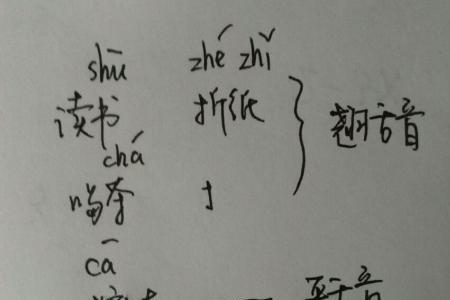 shū zhé zhǐ
读书 折纸
翘舌音
chá
喝茶
cā